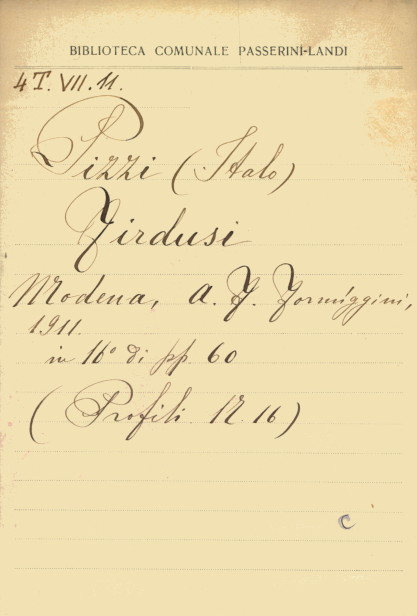 BIBLIOTECA COMUNALE PASSERINI-LANDI
4T. VII. 11.
Pizzi (Italo)
Firdusi
Modena, A. F. Formiggini,
1911.
in 16° di pp. 60
(Profili N. 16)
C